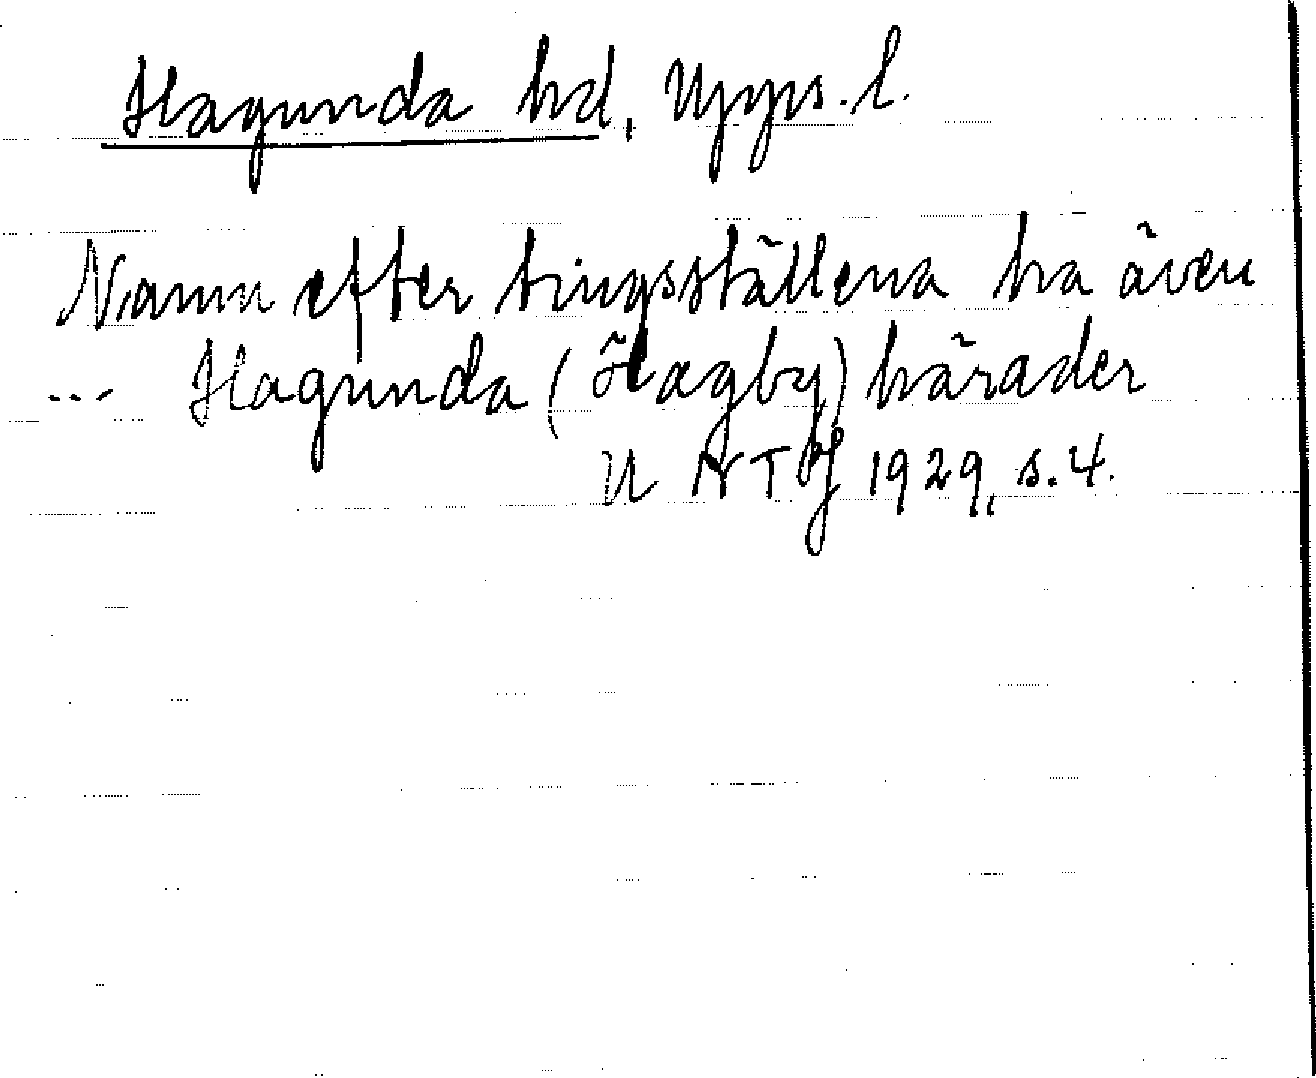 Hagunda hd, Upps. l.
Namn efter tingsställena ha även
... Hagunda (Hagby) härader
U NT 1929, s. 4.